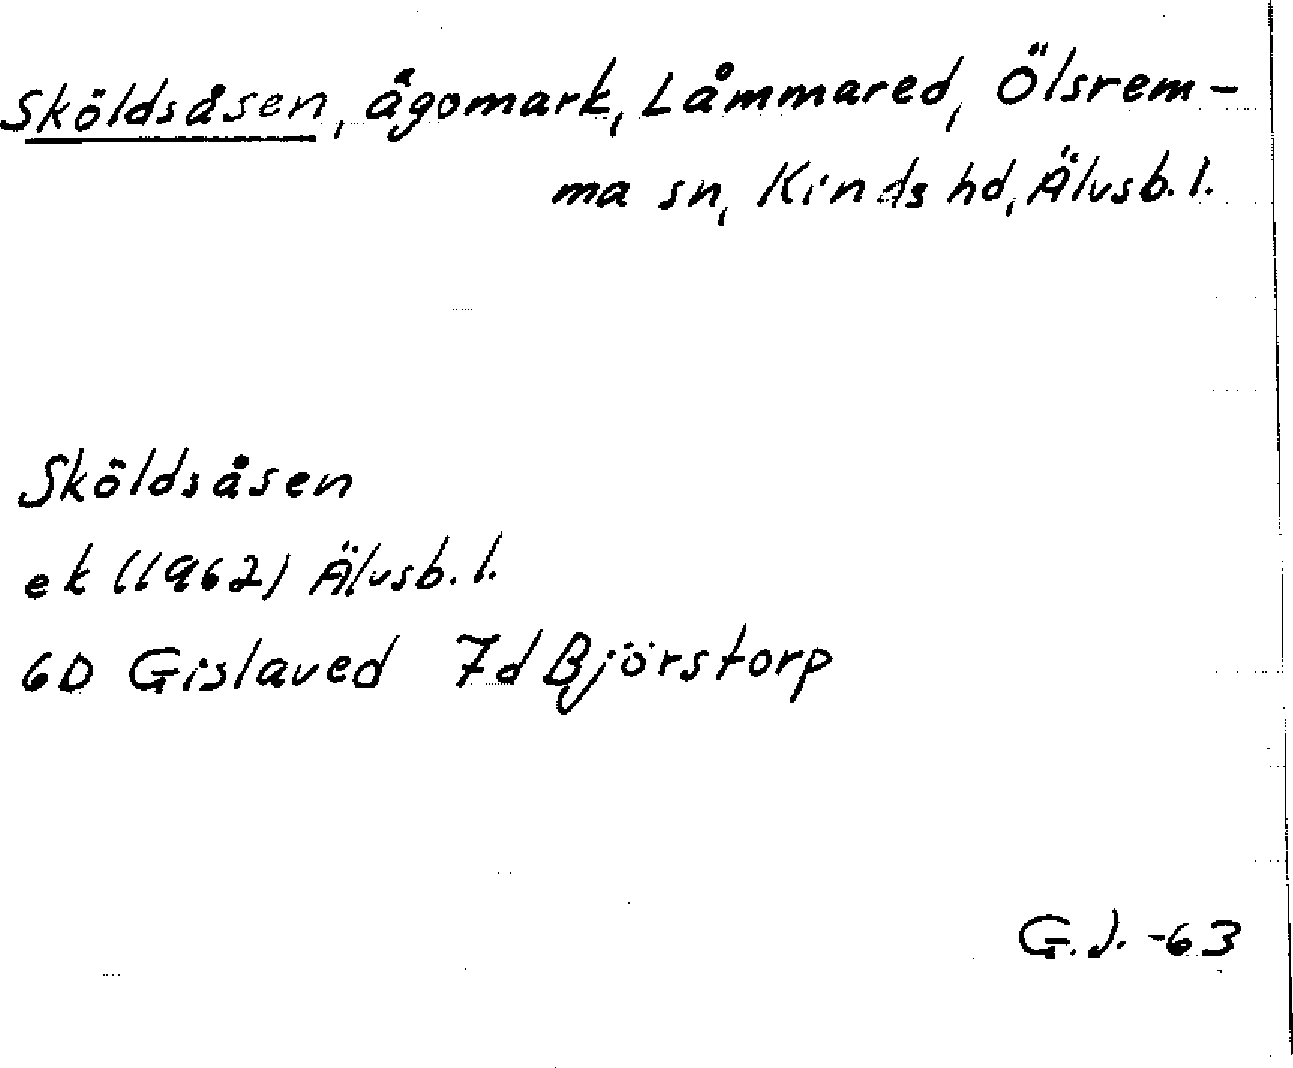 Sköldsåsen, ägomark, Låmmared, Ölsrem-
ma sn, Kinds hd, Älvsb. l.
Sköldsåsen
ek (1962) Älvsb. l.
6D Gislaved 7d Björstorp
G.J. -63